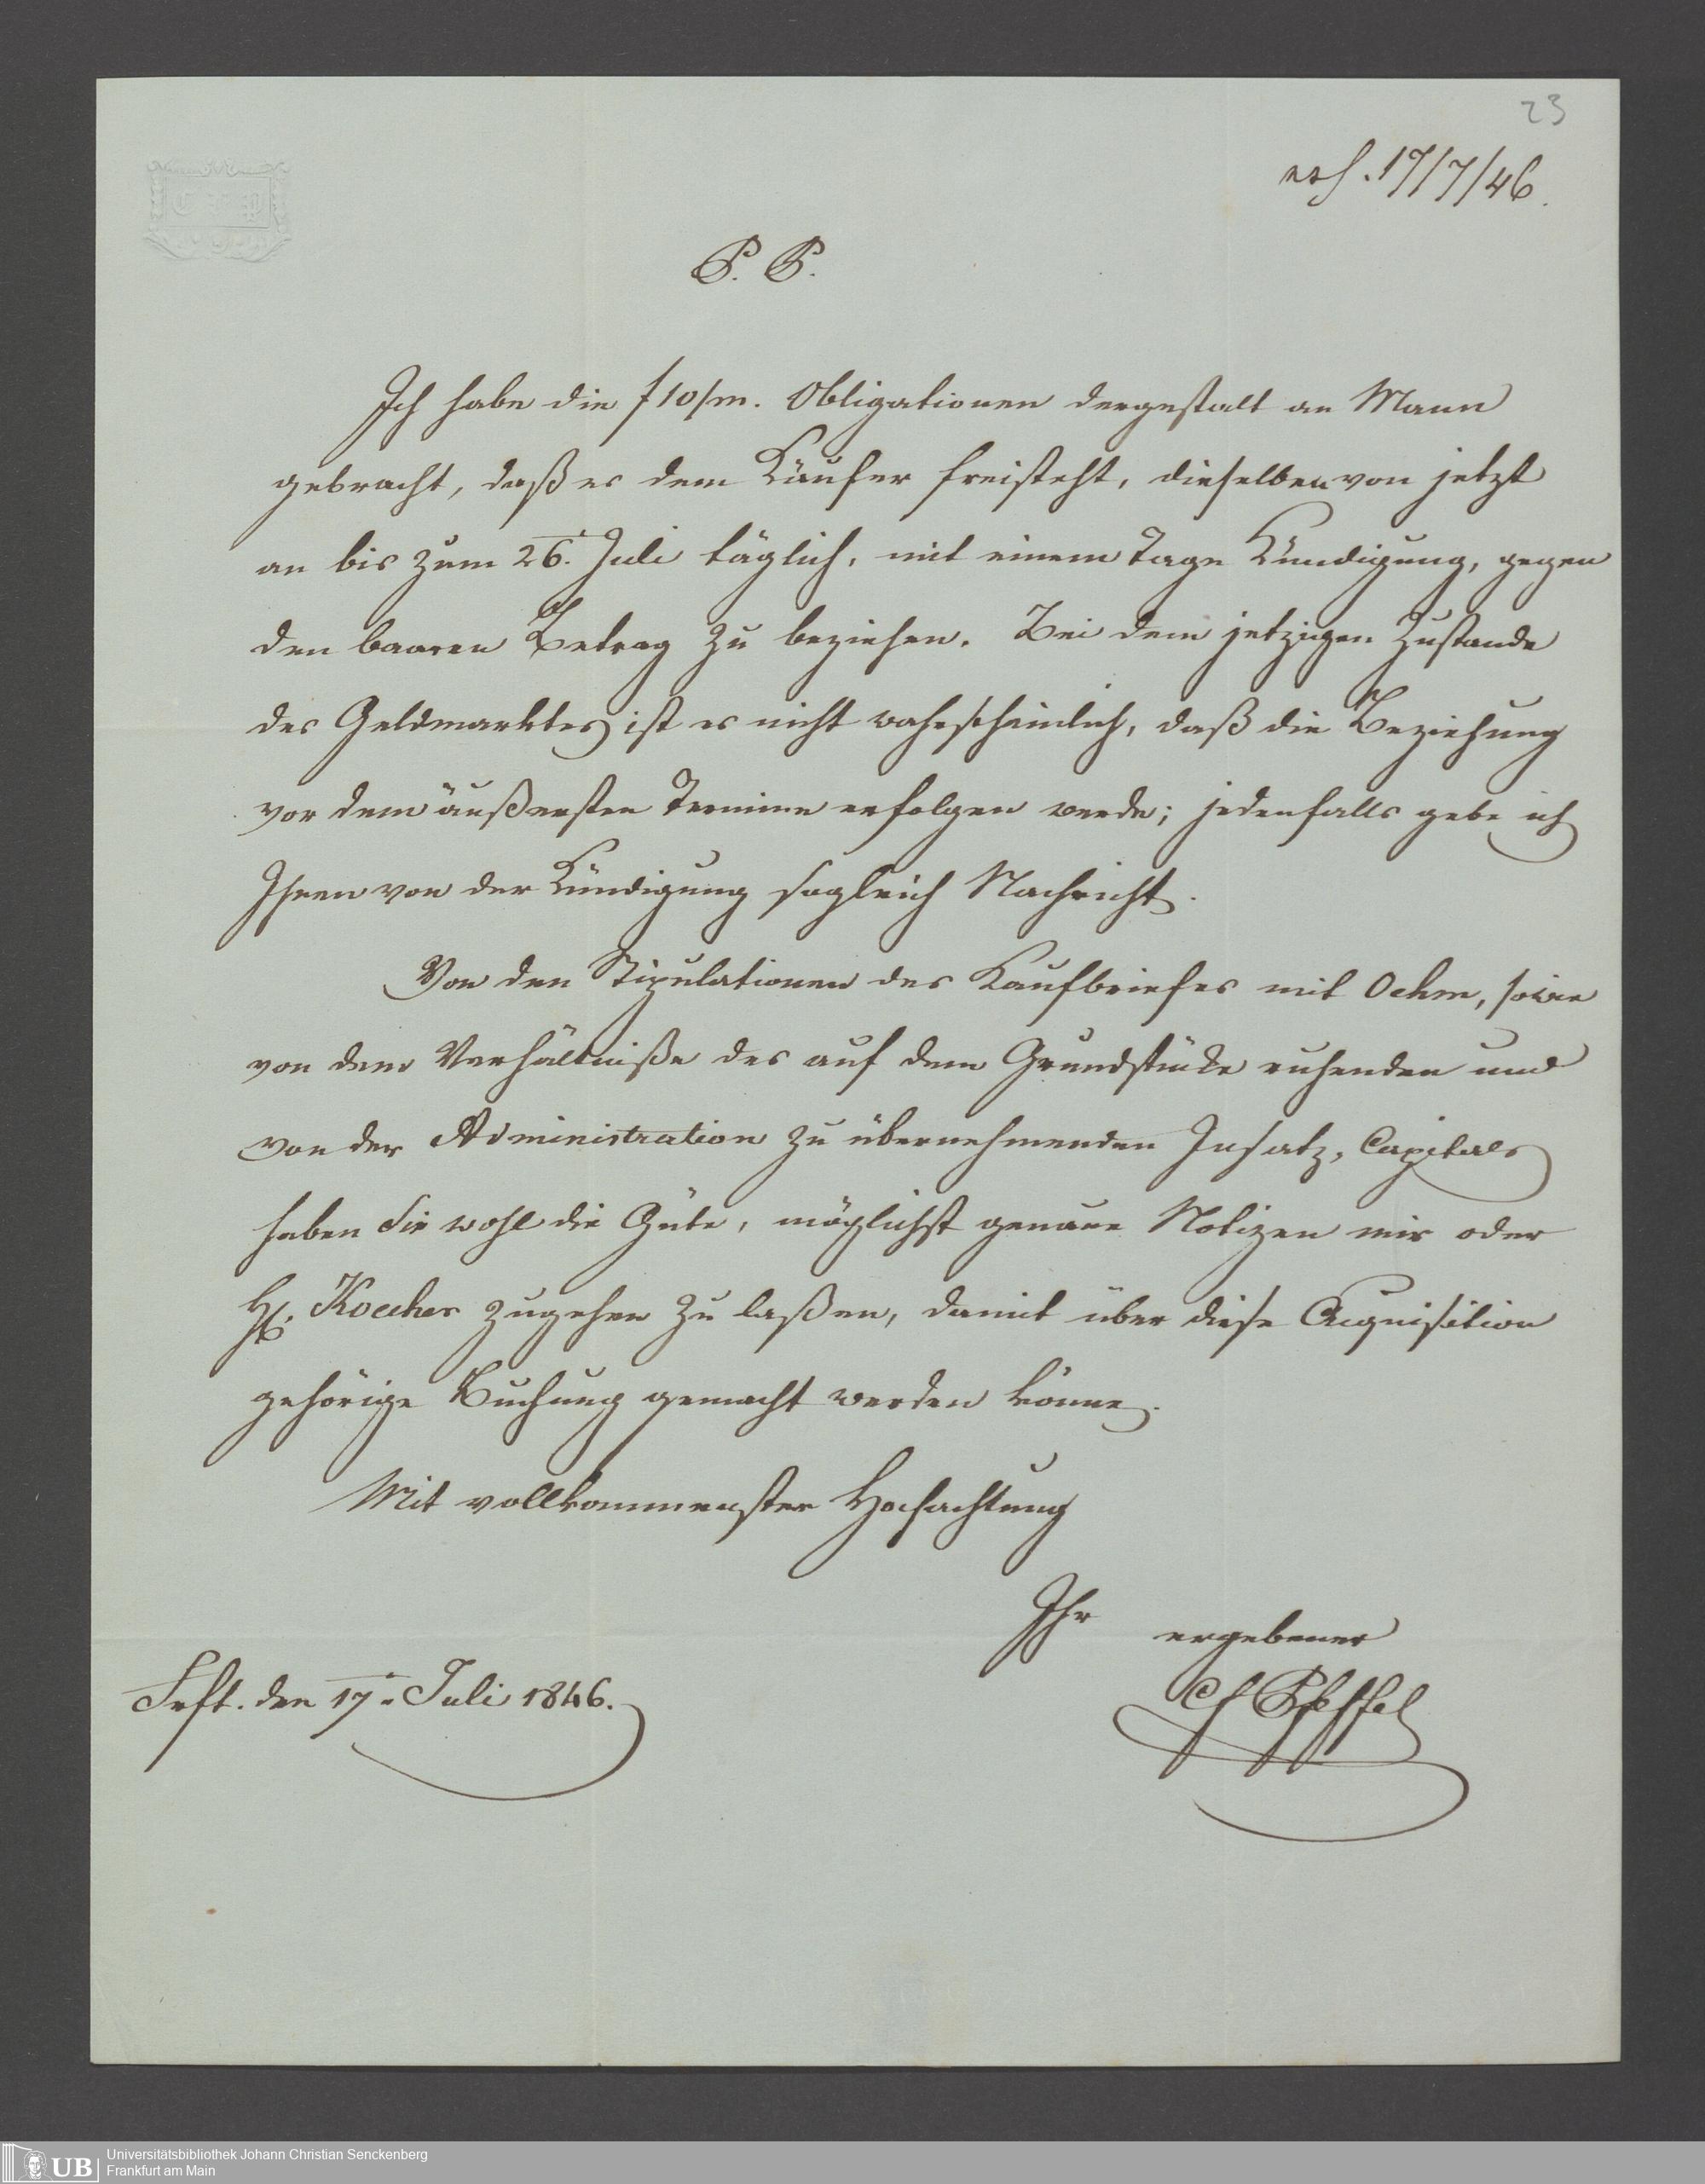 23
erh. 17/7/46.
P. P.
Ich habe die f 10/m. Obligationen dergestalt an Mann
gebracht, daß es dem Käufer freisteht, dieselben von jetzt
an bis zum 26. Juli täglich, mit einem Tage Kündigung, gegen
den baaren Betrag zu beziehen. Bei dem jetzigen Zustande
des Geldmarktes ist es nicht wahrscheinlich, daß die Beziehung
vor dem äußersten Termine erfolgen werde; jedenfalls gebe ich
Ihnen von der Kündigung sogleich Nachricht.
Von den Stipulationen des Kaufbriefes mit Oehm, sowie
von dem Verhältniße des auf dem Grundstücke ruhenden und
von der Administration zu übernehmenden Insatz-Capitals
haben Sie wohl die Güte, möglichst genaue Notizen mir oder
H. Koecher zugehen zu laßen, damit über diese Acquisition
gehörige Buchung gemacht werden könne.
Mit vollkommenster Hochachtung
Ihr ergebener
Frft. den 17. Juli 1846.
Ch Pfeffel
UB
Universitätsbibliothek Johann Christian Senckenberg
Frankfurt am Main